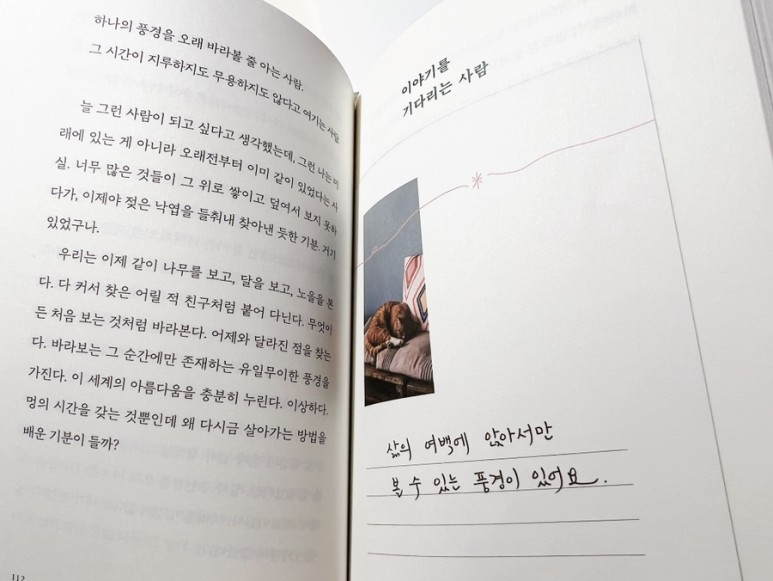 하나의 풍경을 오래 바라볼 줄 아는 사람.
그 시간이 지루하지도 무용하지도 않다고 여기는 사람
늘 그런 사람이 되고 싶다고 생각했는데, 그런 나는 미
래에 있는 게 아니라 오래전부터 이미 같이 있었다는 사
실. 너무 많은 것들이 그 위로 쌓이고 덮여서 보지 못하
다가, 이제야 젖은 낙엽을 들춰내 찾아낸 듯한 기분. 거기
있었구나.
우리는 이제 같이 나무를 보고, 달을 보고, 노을을 본
다. 다 커서 찾은 어릴 적 친구처럼 붙어 다닌다. 무엇이
든 처음 보는 것처럼 바라본다. 어제와 달라진 점을 찾는
다. 바라보는 그 순간에만 존재하는 유일무이한 풍경을
가진다. 이 세계의 아름다움을 충분히 누린다. 이상하다.
멍의 시간을 갖는 것뿐인데 왜 다시금 살아가는 방법을
배운 기분이 들까?
112
이야기를
기다리는 사람
삶의 여백에 앉아서만
볼 수 있는 풍경이 있어요.